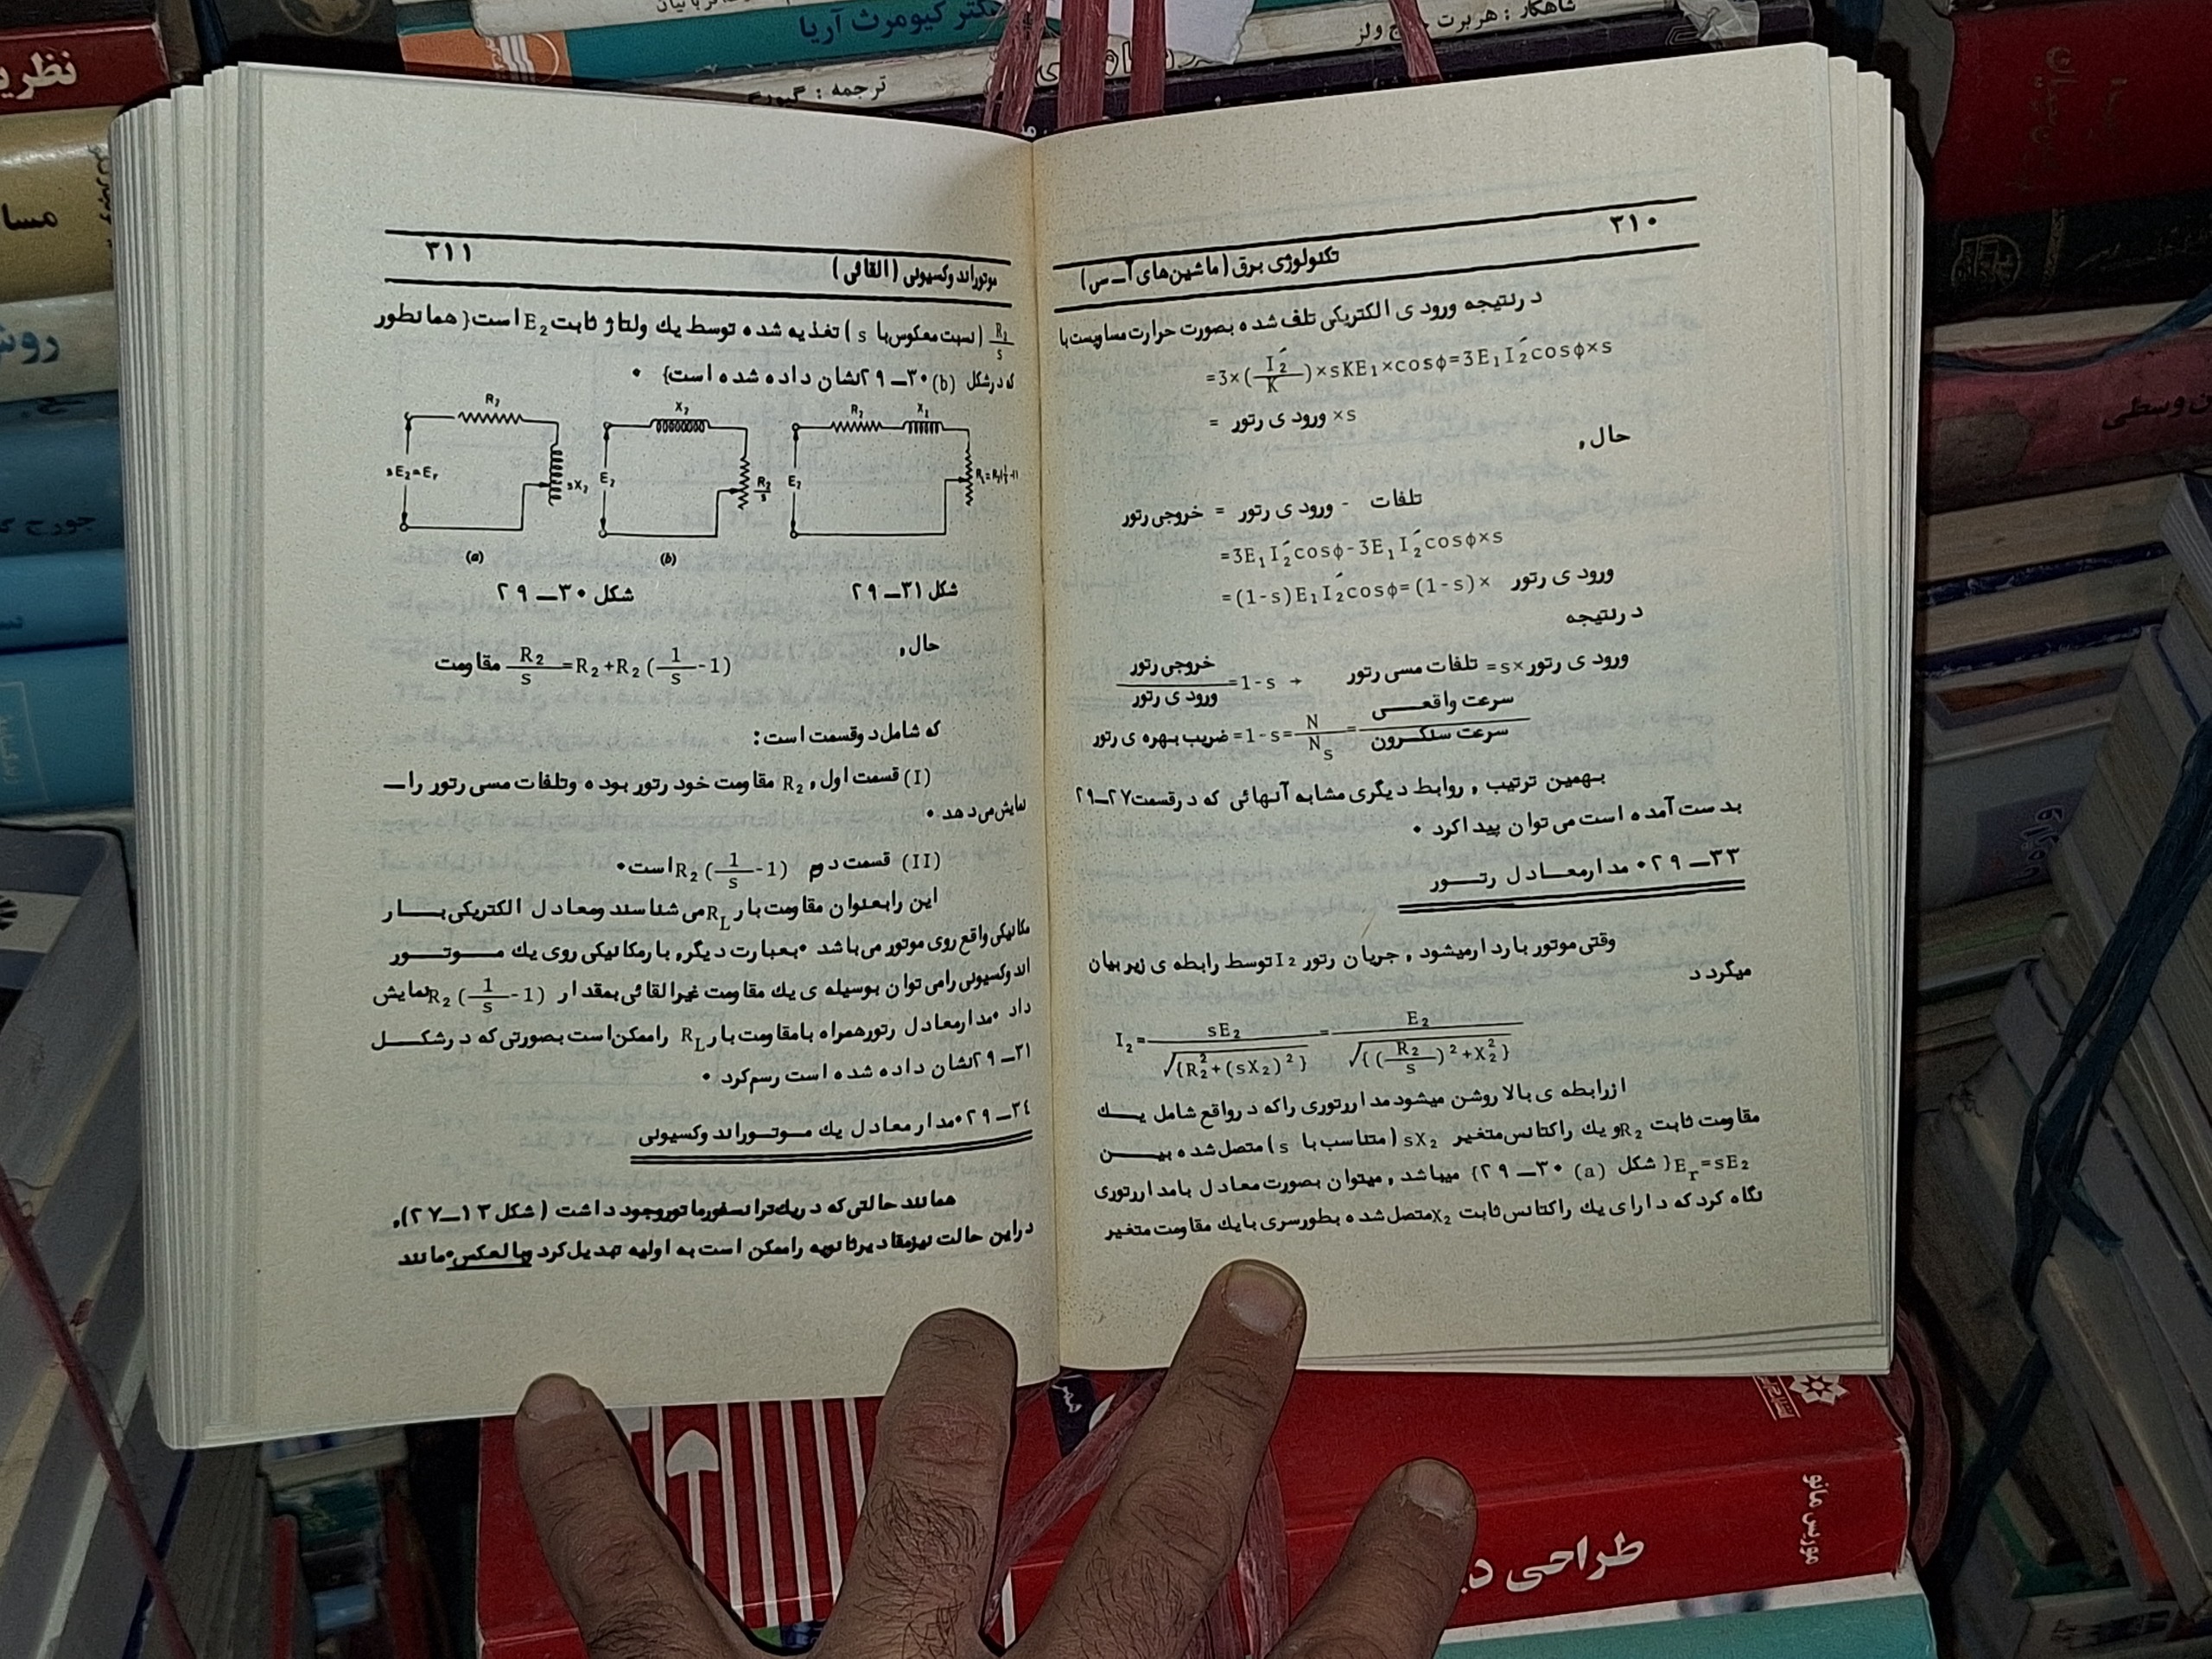 دکتر کیومرث آریا
ترجمه :
نظریه
مسا
روش
طراحی دی
موریس مانو
۳۱۰
تکنولوژی برق (ماشین‌های آ ـ س)
درنتیجه ورودی الکتریکی تلف شده بصورت حرارت مساویست با
=3×(I₂́/K)×sKE₁×cosϕ=3E₁I₂́cosϕ×s
= ورودی رتور ×s
حال,
خروجی رتور = ورودی رتور - تلفات
=3E₁I₂́cosϕ-3E₁I₂́cosϕ×s
=(1-s)E₁I₂́cosϕ=(1-s)× ورودی رتور
درنتیجه
خروجی رتور/ورودی رتور=1-s → تلفات مسی رتور =s×ورودی رتور
ضریب بهره‌ی رتور=1-s=N/Nₛ=سرعت واقعی/سرعت سنکرون
بهمین ترتیب , روابط دیگری مشابه آنهائی که درقسمت ۲۷ـ۲۹
بدست آمده است می‌توان پیدا کرد .
۳۳ـ۲۹. مدارمعادل رتور
وقتی موتور باردارمیشود , جریان رتور I₂ توسط رابطه‌ی زیر بیان
میگردد
I₂=sE₂/√{R₂²+(sX₂)²}=E₂/√{(R₂/s)²+X₂²}
ازرابطه‌ی بالا روشن میشود مداررتوری راکه درواقع شامل یک
مقاومت ثابت R₂ ویک راکتانس متغیر sX₂ (متناسب با s) متصل شده بین
Eᵣ=sE₂ {شکل (a) ۳۰ـ۲۹} میباشد , میتوان بصورت معادل بامداررتوری
نگاه کرد که دارای یک راکتانس ثابت X₂ متصل شده بطورسری بایک مقاومت متغیر
۳۱۱
موتوراندوکسیونی (القائی)
R₂/s (نسبت معکوس با s) تغذیه شده توسط یک ولتاژ ثابت E₂ است{ همانطور
که درشکل (b) ۳۰ـ۲۹نشان داده شده است} .
R₂ sE₂=Eᵣ sX₂
X₂ E₂ R₂/s
R₂ X₂ E₂ R_L=R₂(1/s-1)
(a) (b)
شکل ۳۰ـ۲۹ شکل ۳۱ـ۲۹
حال,
مقاومت R₂/s=R₂+R₂(1/s-1)
که شامل دوقسمت است :
(I) قسمت اول, R₂ مقاومت خود رتور بوده وتلفات مسی رتور راـ
نمایش می‌دهد .
(II) قسمت دوم R₂(1/s-1) است.
این رابعنوان مقاومت بار R_L می‌شناسند ومعادل الکتریکی بار
مکانیکی واقع روی موتور می‌باشد .بعبارت دیگر, بارمکانیکی روی یک موتور
اندوکسیونی رامی‌توان بوسیله‌ی یک مقاومت غیرالقائی بمقدار R₂(1/s-1) نمایش
داد .مدارمعادل رتورهمراه بامقاومت بار R_L راممکن است بصورتی که درشکل
۳۱ـ۲۹نشان داده شده است رسم کرد .
۳٤ـ۲۹.مدارمعادل یک موتوراندوکسیونی
همانند حالتی که دریک ترانسفورماتوروجود داشت (شکل ۱۳ـ۲۷),
دراین حالت نیزمقادیرثانویه راممکن است به اولیه تبدیل کرد وبالعکس.مانند